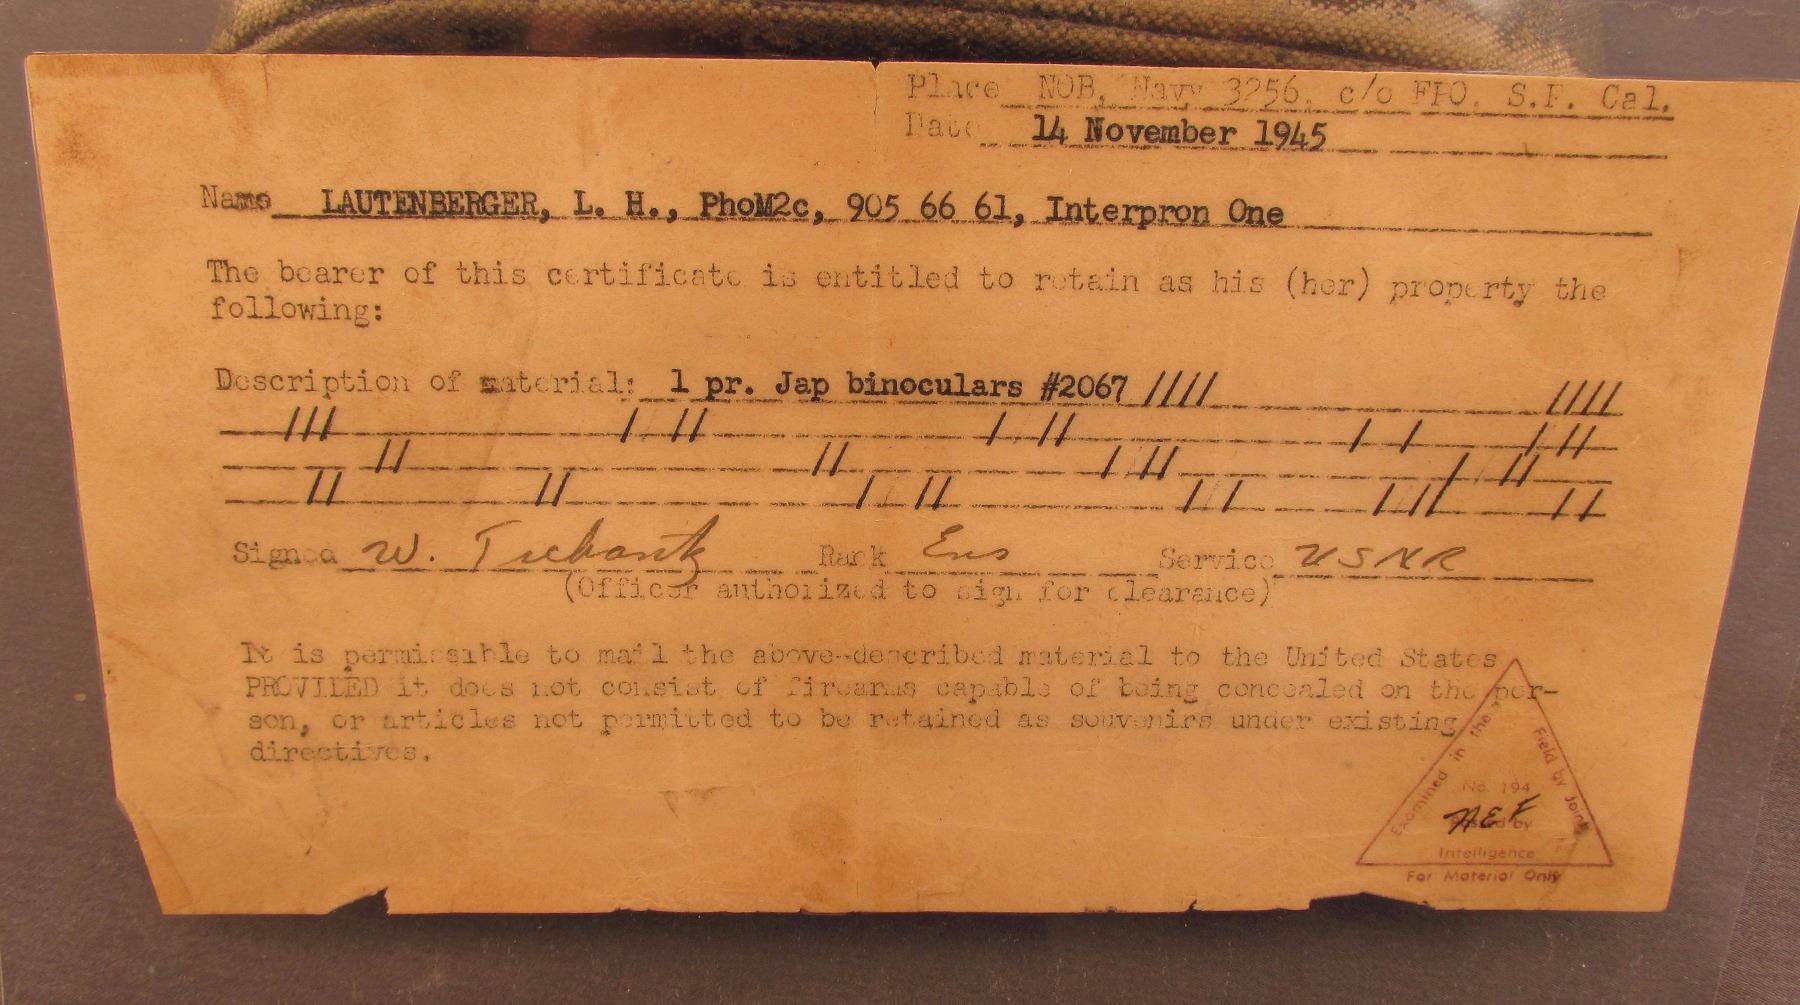 Place NOB, Navy 3256, c/o FPO, S.F. Cal.
Date 14 November 1945
Name LAUTENBERGER, L. H., PhoM2c, 905 66 61, Interpron One
The bearer of this certificate is entitled to retain as his (her) property the
following:
Description of material: 1 pr. Jap binoculars #2067 //// ////
/// / // / // / / / //
// // / // / //
// // / // / // / // / //
Signed W. Rank Ens Service USNR
(Officer authorized to sign for clearance)
It is permissible to mail the above-described material to the United States
PROVIDED it does not consist of firearms capable of being concealed on the per-
son, or articles not permitted to be retained as souvenirs under existing
directives.
Examined in the Field by Joint
No. 194
Passed by
Intelligence
For Material Only